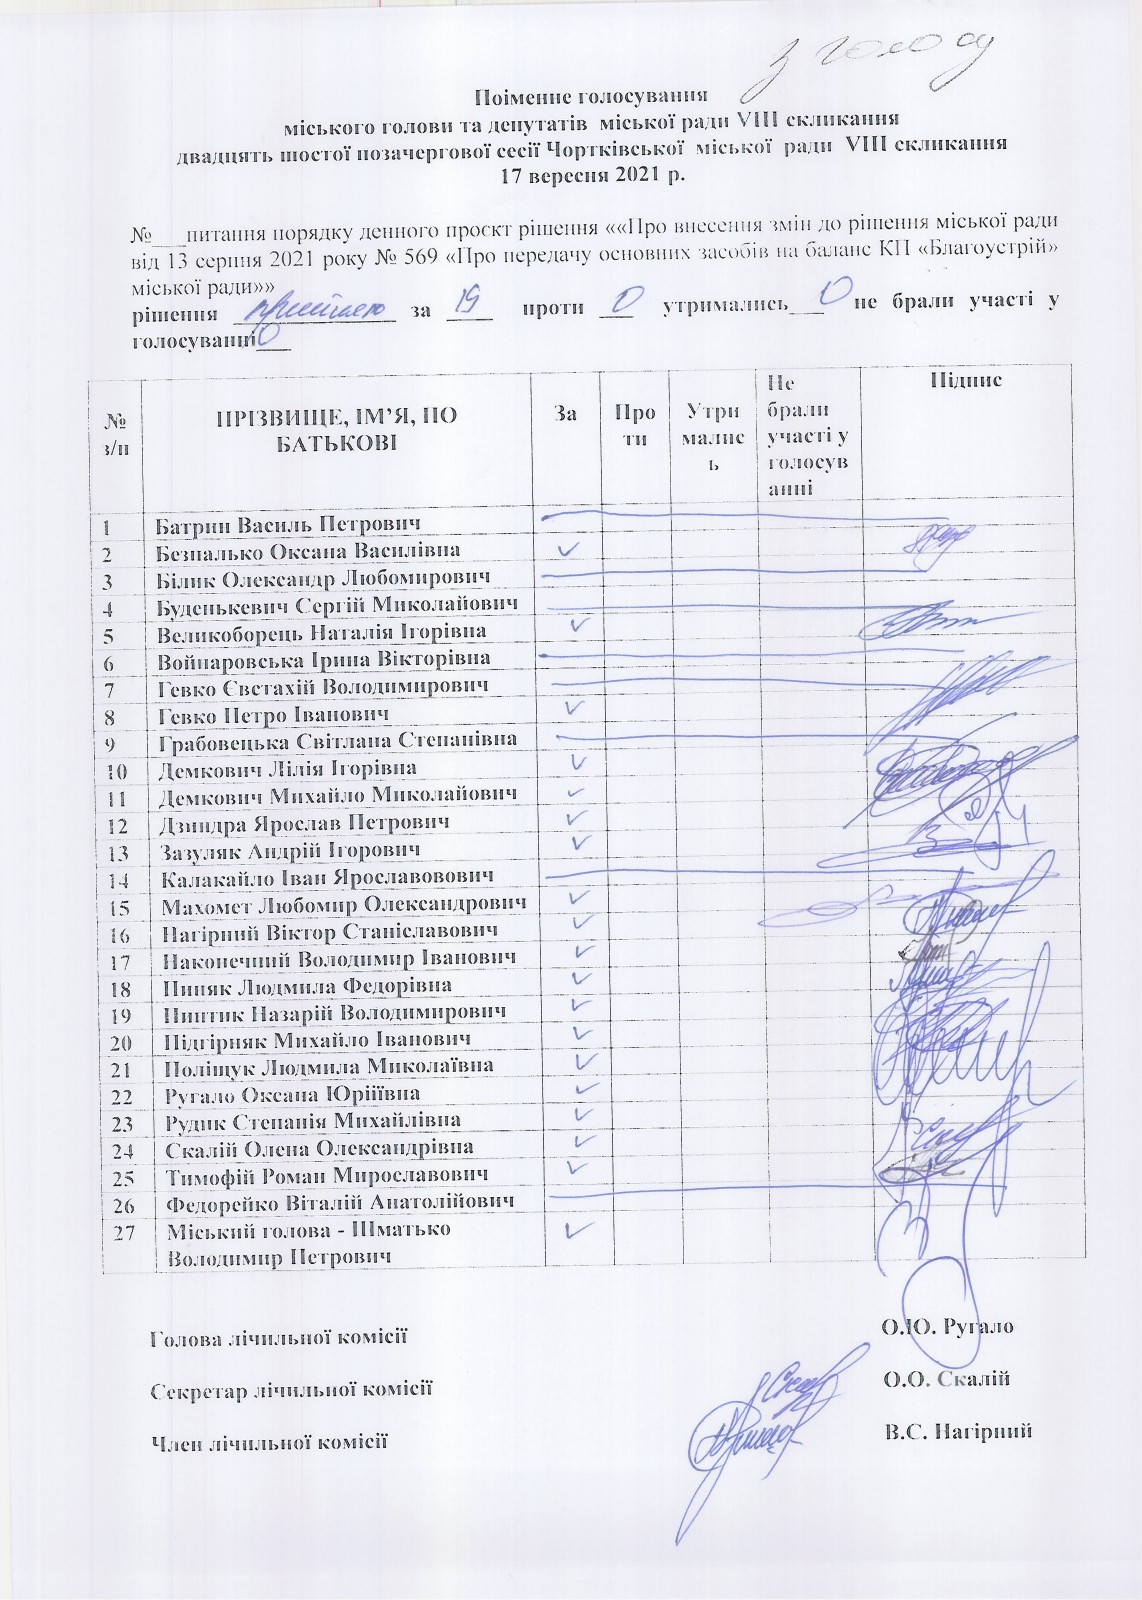 з голосу
Поіменне голосування
міського голови та депутатів міської ради VIII скликання
двадцять шостої позачергової сесії Чортківської міської ради VIII скликання
17 вересня 2021 р.
№___питання порядку денного проєкт рішення ««Про внесення змін до рішення міської ради
від 13 серпня 2021 року № 569 «Про передачу основних засобів на баланс КП «Благоустрій»
міської ради»»
рішення прийнято за 19 проти 0 утримались 0 не брали участі у
голосуванні 0
№ з/п ПРІЗВИЩЕ, ІМ’Я, ПО БАТЬКОВІ За Проти Утримались Не брали участі у голосуванні Підпис
1 Батрин Василь Петрович
2 Безпалько Оксана Василівна ✓
3 Білик Олександр Любомирович
4 Буденькевич Сергій Миколайович
5 Великоборець Наталія Ігорівна ✓
6 Войнаровська Ірина Вікторівна
7 Гевко Євстахій Володимирович
8 Гевко Петро Іванович ✓
9 Грабовецька Світлана Степанівна
10 Демкович Лілія Ігорівна ✓
11 Демкович Михайло Миколайович ✓
12 Дзиндра Ярослав Петрович ✓
13 Зазуляк Андрій Ігорович ✓
14 Калакайло Іван Ярославовович
15 Махомет Любомир Олександрович ✓
16 Нагірний Віктор Станіславович ✓
17 Наконечний Володимир Іванович ✓
18 Пиняк Людмила Федорівна ✓
19 Пиптик Назарій Володимирович ✓
20 Підгірняк Михайло Іванович ✓
21 Поліщук Людмила Миколаївна ✓
22 Ругало Оксана Юріїівна ✓
23 Рудик Степанія Михайлівна ✓
24 Скалій Олена Олександрівна ✓
25 Тимофій Роман Мирославович ✓
26 Федорейко Віталій Анатолійович
27 Міський голова - Шматько ✓
Володимир Петрович
Голова лічильної комісії О.Ю. Ругало
Секретар лічильної комісії О.О. Скалій
Член лічильної комісії В.С. Нагірний